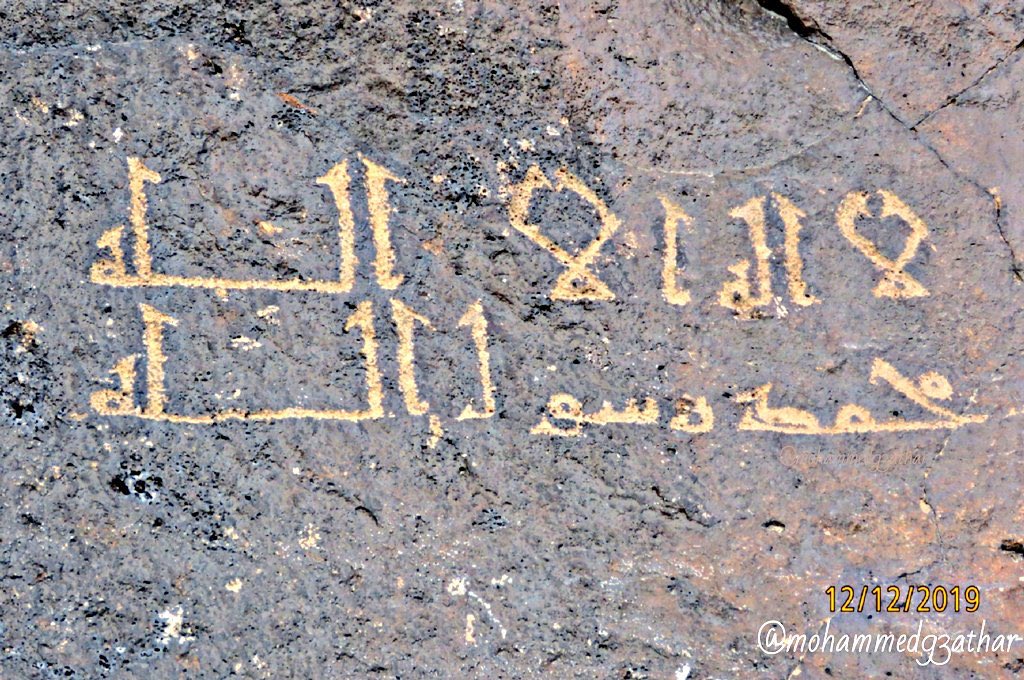 لا اله الا الله
محمد رسول الله
12/12/2019
@mohammedg3athar